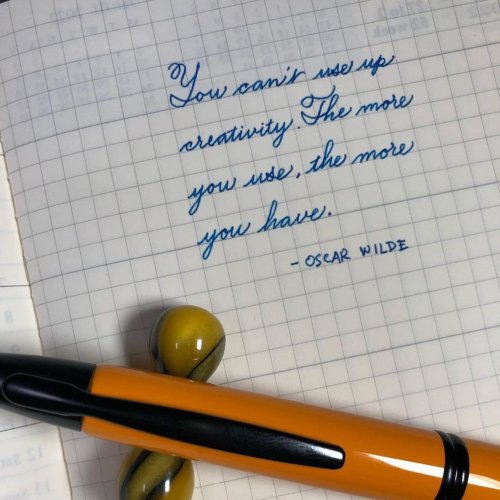 You can't use up
creativity. The more
you use, the more
you have.
- OSCAR WILDE
8
12 Sat